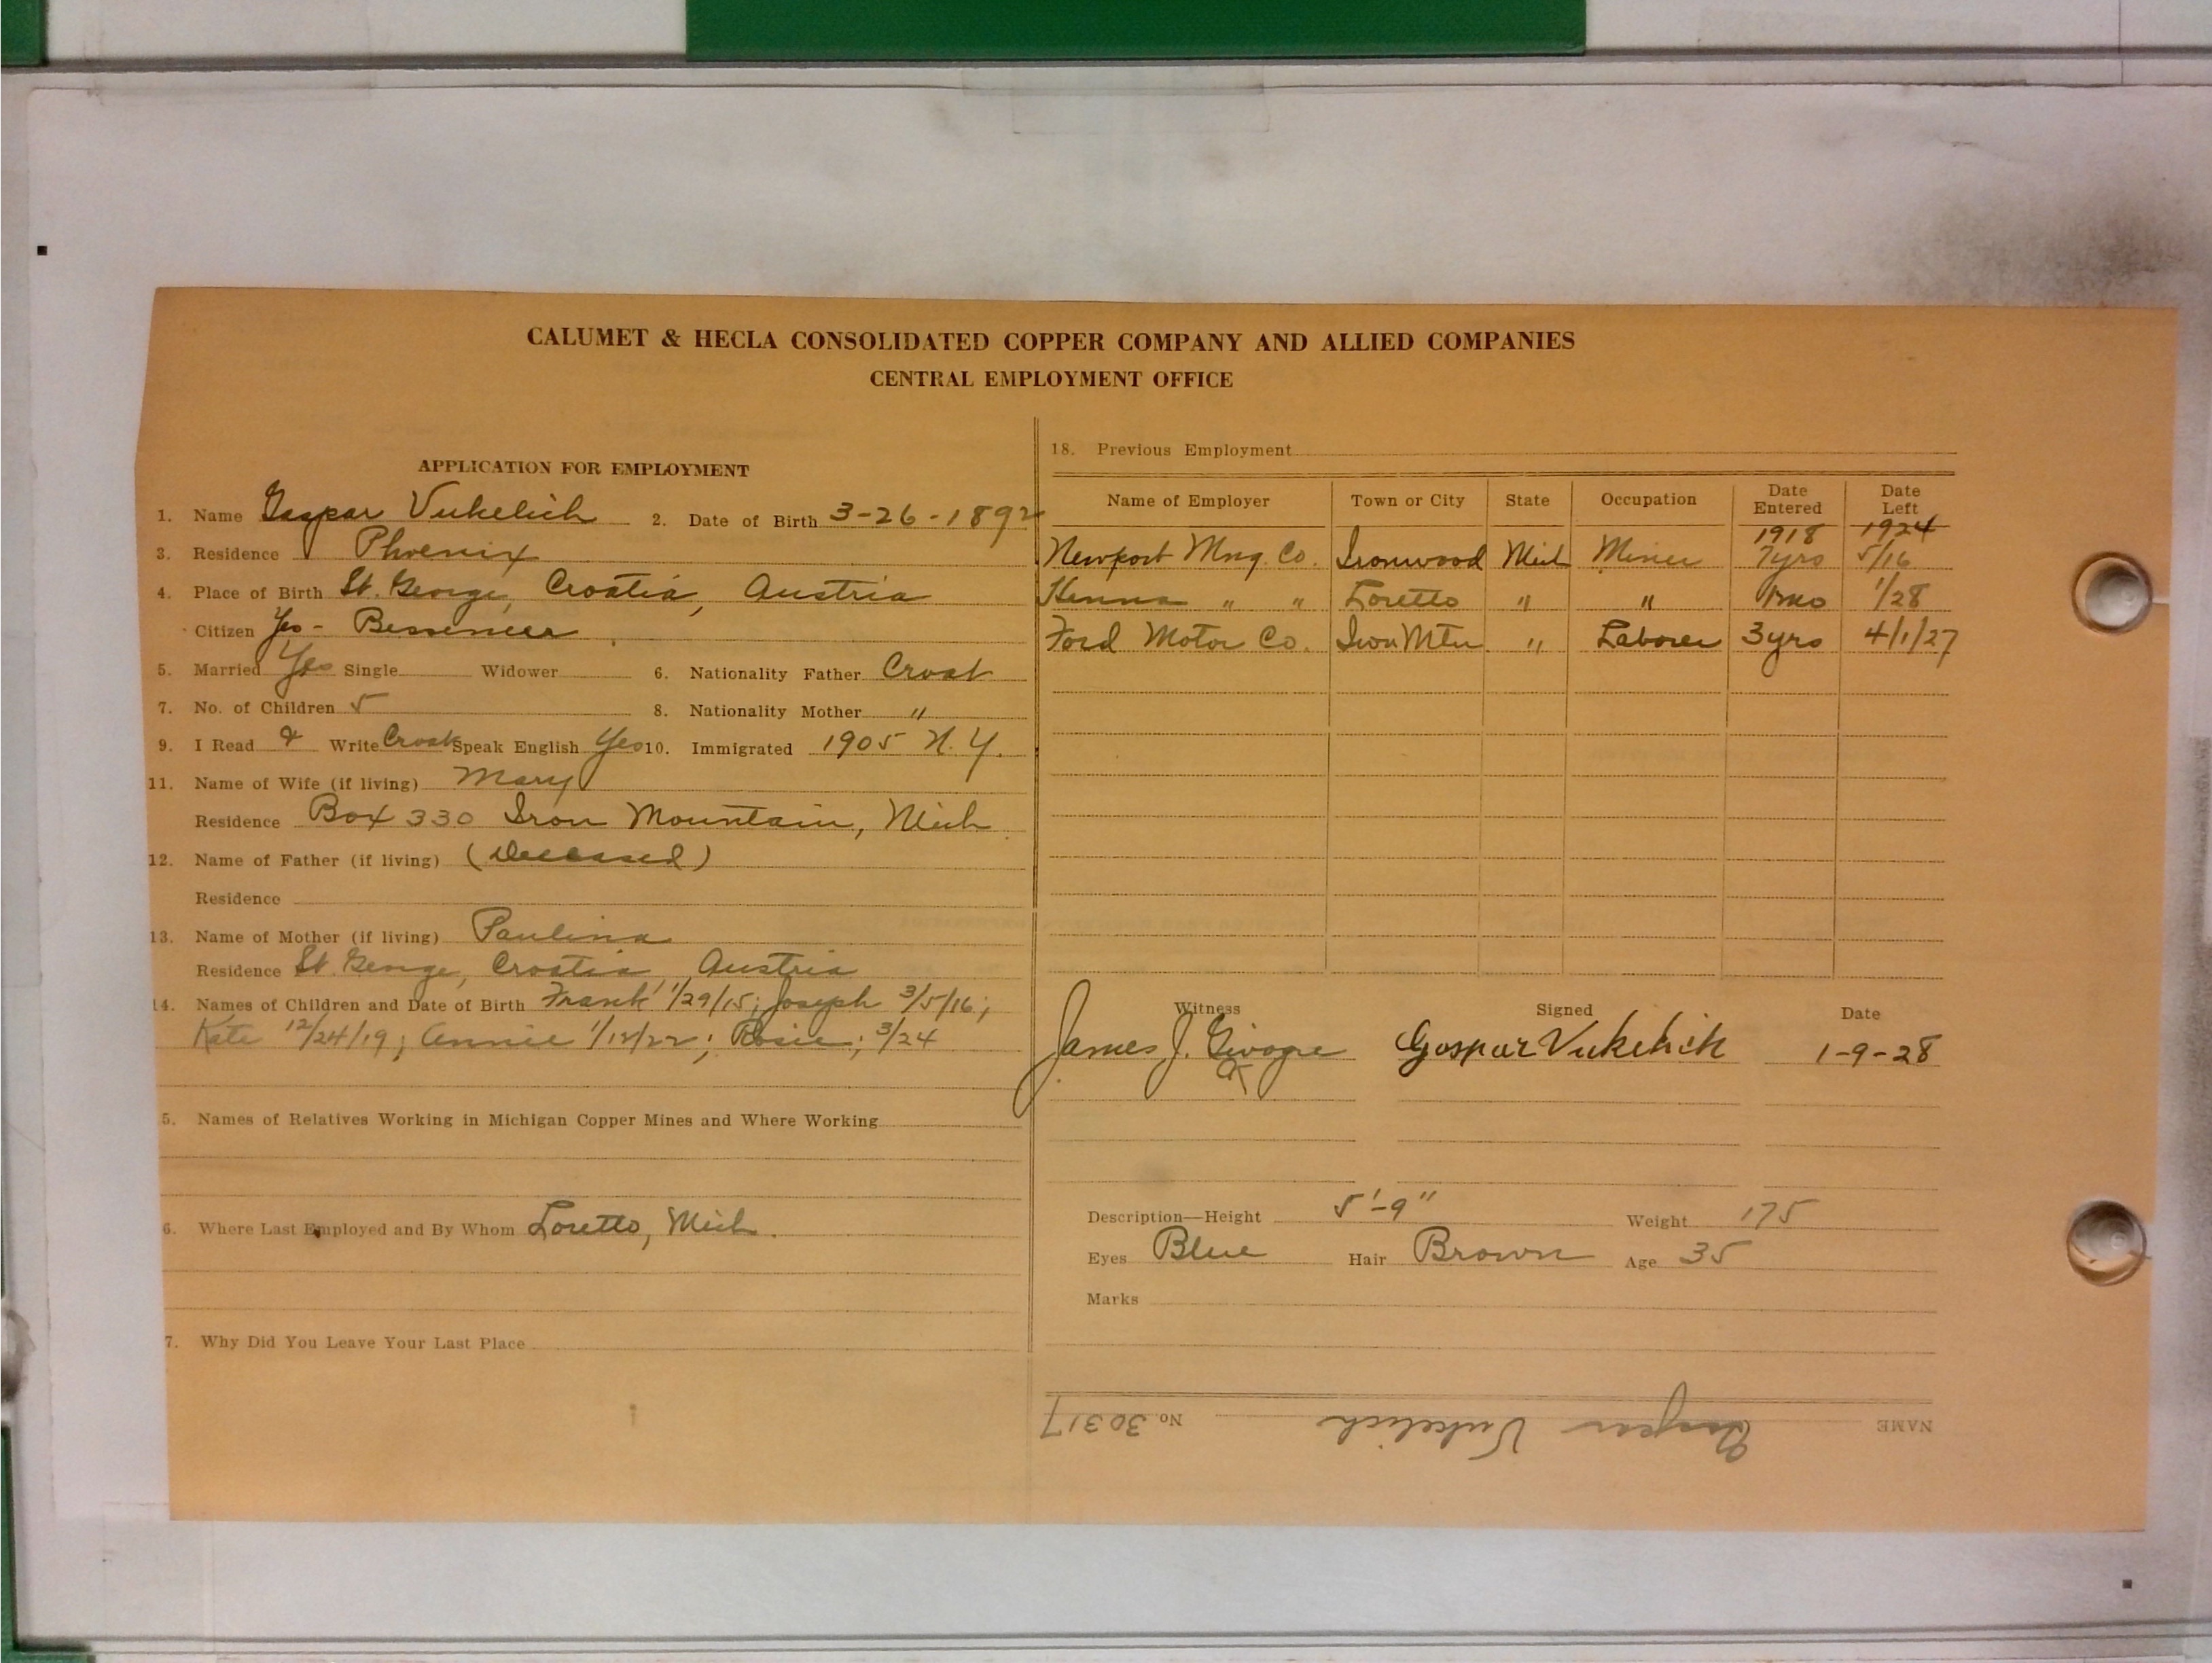 CALUMET & HECLA CONSOLIDATED COPPER COMPANY AND ALLIED COMPANIES
CENTRAL EMPLOYMENT OFFICE
APPLICATION FOR EMPLOYMENT
1. Name Gaspar Vukelich 2. Date of Birth 3-26-1892
3. Residence Phoenix
4. Place of Birth St. George, Croatia, Austria
Citizen Yes - Bessemer
5. Married Yes Single Widower 6. Nationality Father Croat
7. No. of Children 5 8. Nationality Mother "
9. I Read & Write Croat Speak English Yes 10. Immigrated 1905 N.Y.
11. Name of Wife (if living) Mary
Residence Box 330 Iron Mountain, Mich
12. Name of Father (if living) (Deceased)
Residence
13. Name of Mother (if living) Paulina
Residence St. George, Croatia, Austria
14. Names of Children and Date of Birth Frank 1/29/15; Joseph 3/5/16;
Kate 12/24/19; Annie 1/12/22; Rosie; 3/24
5. Names of Relatives Working in Michigan Copper Mines and Where Working
6. Where Last Employed and By Whom Loretto, Mich.
7. Why Did You Leave Your Last Place
18. Previous Employment
Name of Employer Town or City State Occupation Date Entered Date Left
1918 1924
Newport Mng. Co. Ironwood Mich Miner 7yrs 5/16
" " Loretto " " 1/28
Ford Motor Co. Iron Mtn " Laborer 3yrs 4/1/27
Witness Signed Date
James J. Gospar Vukelich 1-9-28
Description—Height 5'-9" Weight 175
Eyes Blue Hair Brown Age 35
Marks
NAME Gaspar Vukelich No. 30317